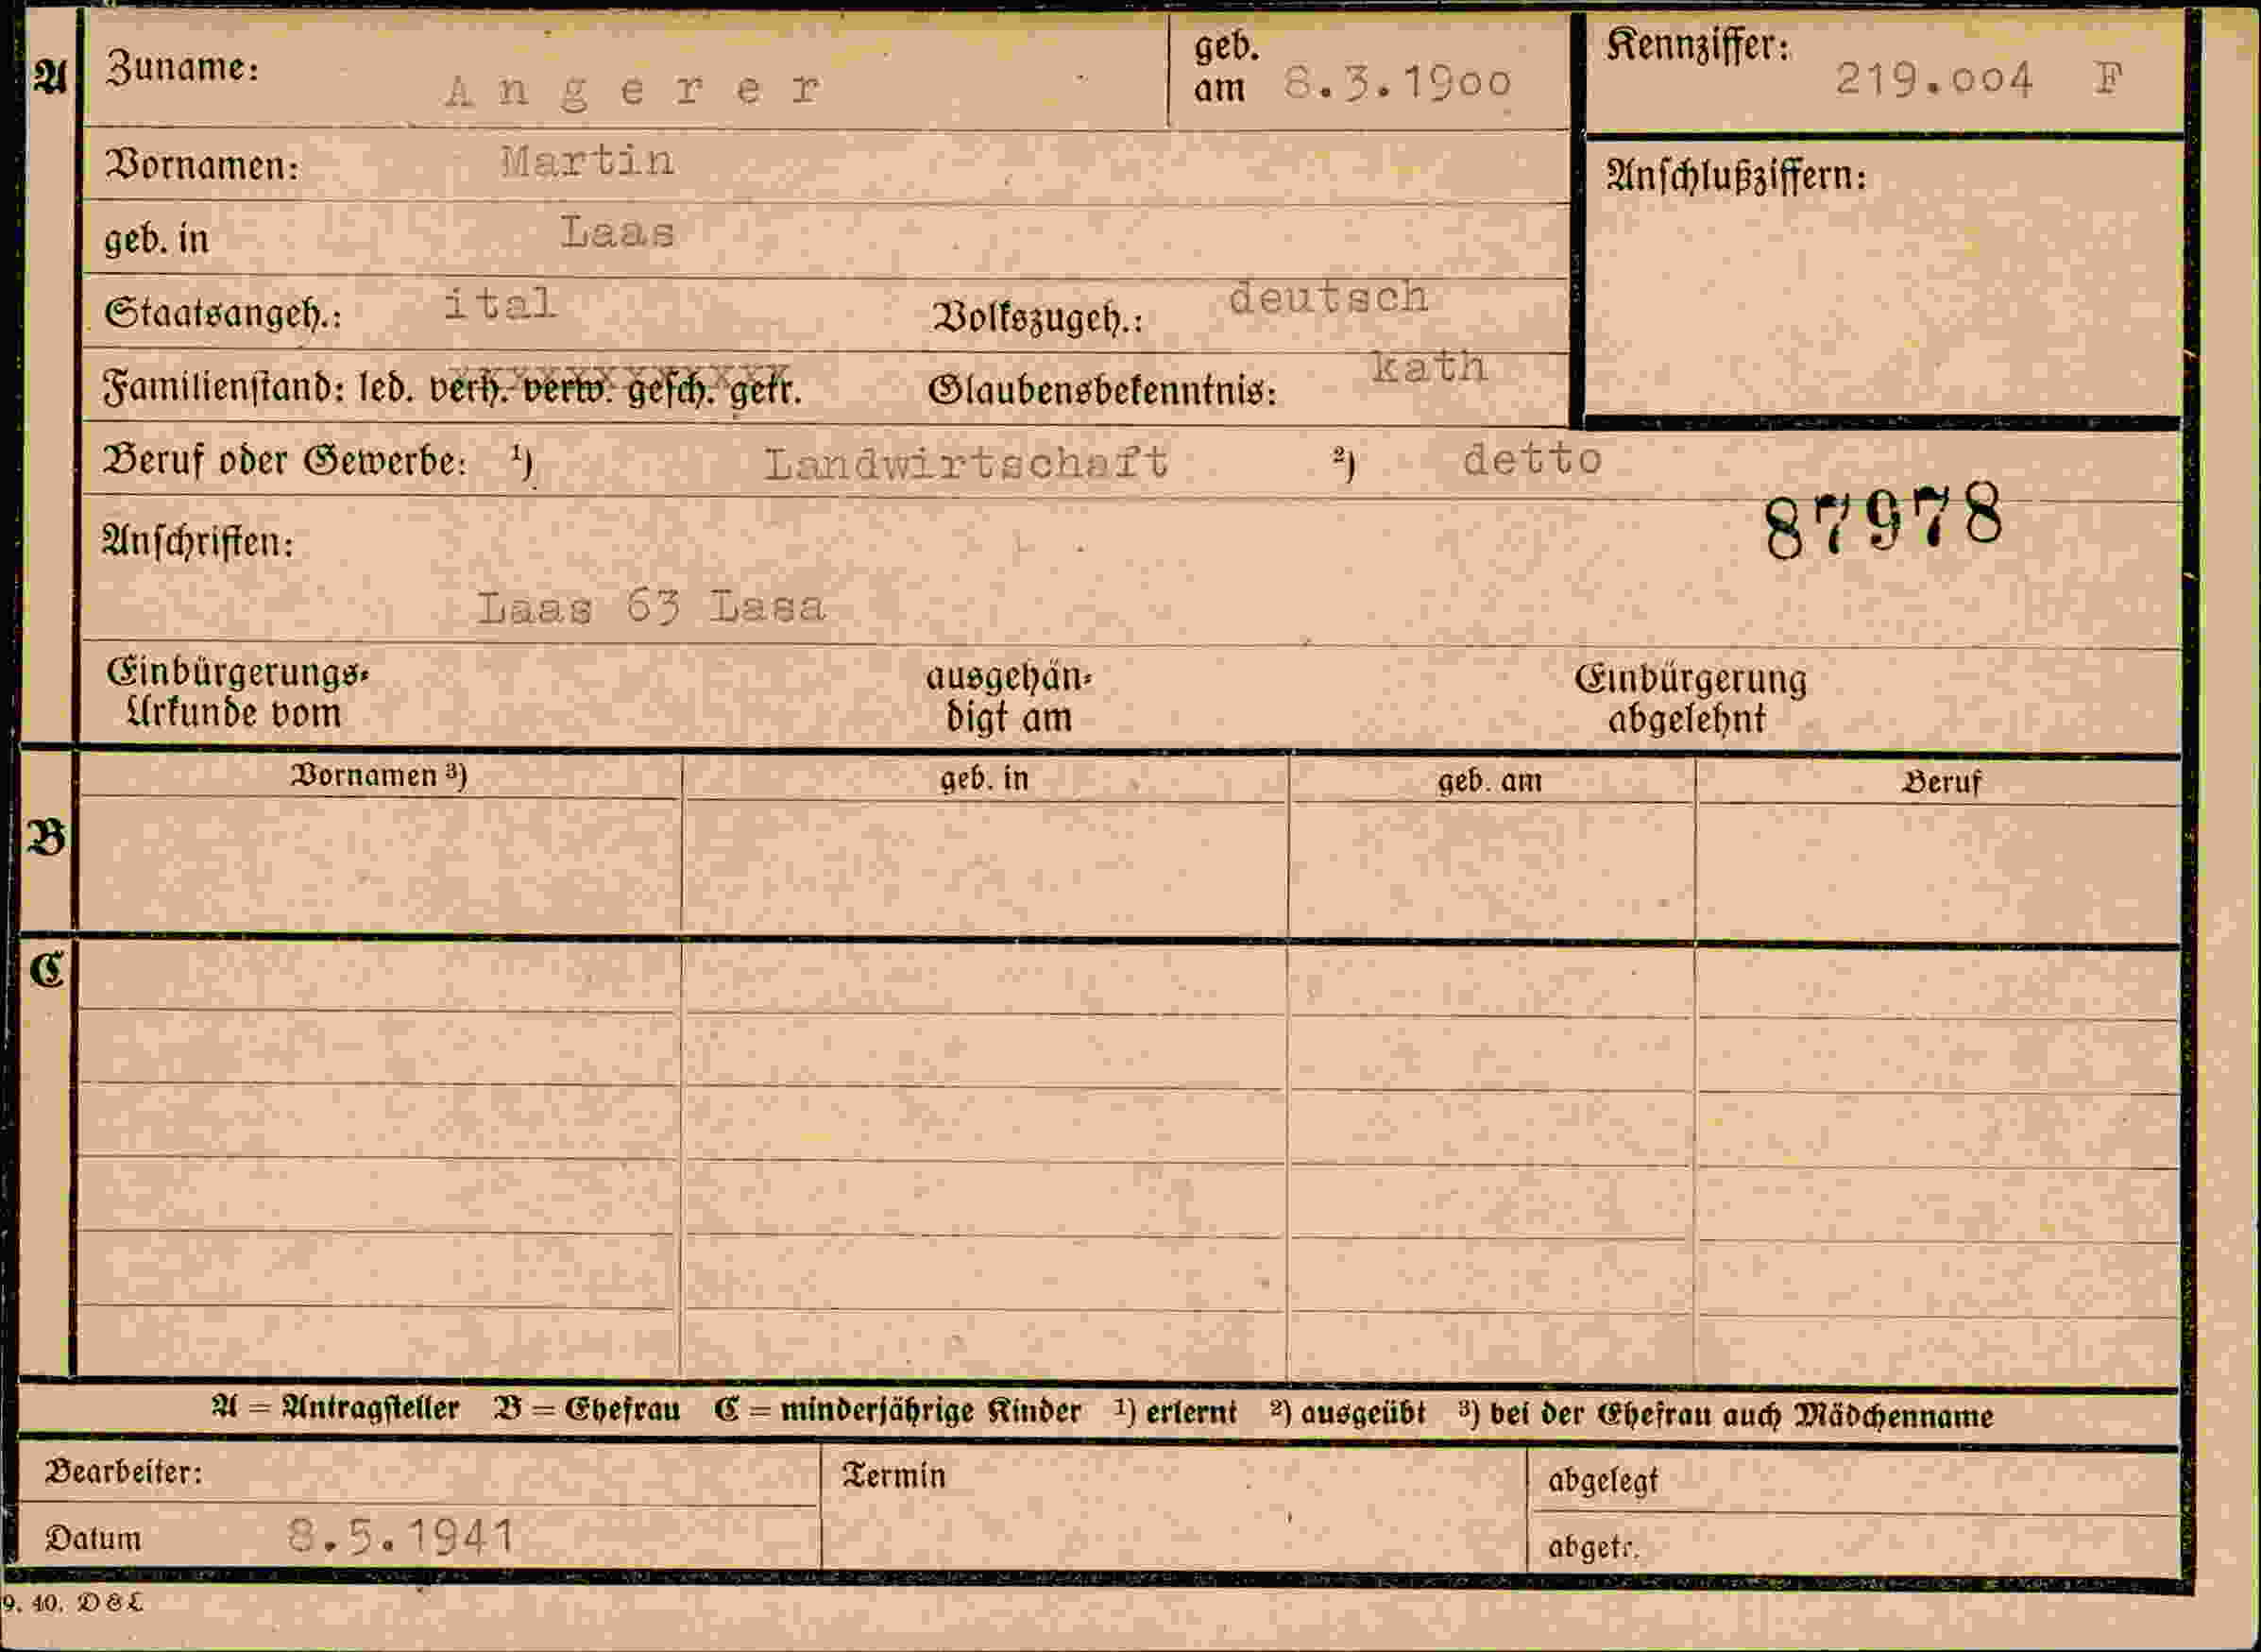 A Zuname: Angerer geb. am 8.3.1900 Kennziffer: 219.004 F
Vornamen: Martin Anschlußziffern:
geb. in Laas
Staatsangeh.: ital Volkszugeh.: deutsch
Familienstand: led. verh. verw. gesch. getr. Glaubensbekenntnis: kath
Beruf oder Gewerbe: ¹) Landwirtschaft ²) detto
87978
Anschriften:
Laas 63 Lasa
Einbürgerungs-Urkunde vom ausgehän-digt am Einbürgerung abgelehnt
B Vornamen ³) geb. in geb. am Beruf
C
A = Antragsteller B = Ehefrau C = minderjährige Kinder ¹) erlernt ²) ausgeübt ³) bei der Ehefrau auch Mädchenname
Bearbeiter: Termin abgelegt
Datum 8.5.1941 abgetr.
9. 40. D&L